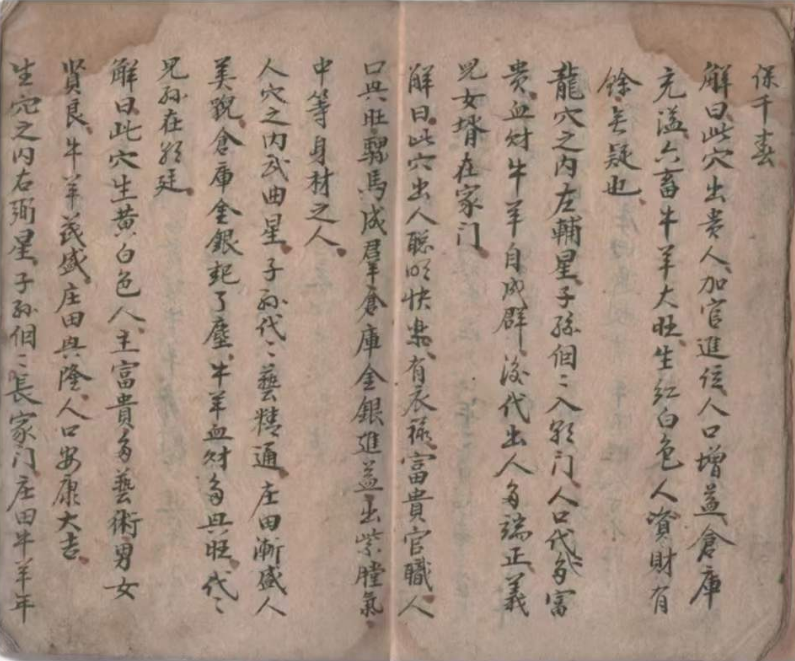 保千春
解曰此穴出贵人加官進位人口增益倉庫
充溢六畜牛羊大旺生紅白色人資財有
餘無疑也
龍穴之内左輔星子孫個〻入朝门人口代〻多富
贵血财牛羊自成群後代出人多端正義
兒女壻在家门
解曰此穴出人聪明快楽有衣禄富貴官職人
口兴旺騾馬成羣倉庫金銀進益出紫膛氣
中等身材之人
人穴之内武曲星子孙代〻藝精通庄田漸盛人
美貌倉庫金銀起了塵牛羊血财多兴旺代〻
兒孙在朝廷
解曰此穴生黄白色人主富貴多藝術男女
贤良牛羊茂盛庄田兴隆人口安康大吉
生穴之内右弼星子孙個〻長家门庄田牛羊年